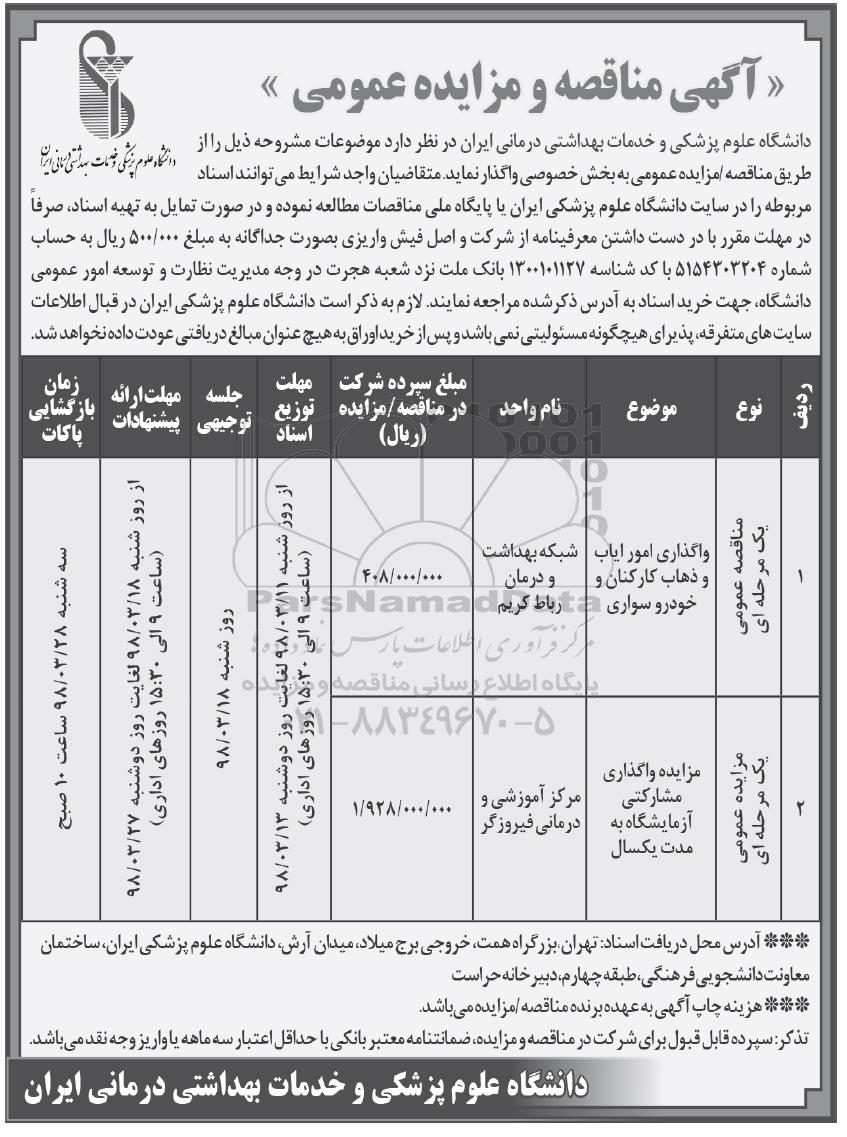 « آگهی مناقصه و مزایده عمومی »
دانشگاه علوم پزشکی و خدمات بهداشتی درمانی ایران
دانشگاه علوم پزشکی و خدمات بهداشتی درمانی ایران در نظر دارد موضوعات مشروحه ذیل را از
طریق مناقصه/مزایده عمومی به بخش خصوصی واگذار نماید. متقاضیان واجد شرایط می توانند اسناد
مربوطه را در سایت دانشگاه علوم پزشکی ایران یا پایگاه ملی مناقصات مطالعه نموده و در صورت تمایل به تهیه اسناد، صرفاً
در مهلت مقرر با در دست داشتن معرفینامه از شرکت و اصل فیش واریزی بصورت جداگانه به مبلغ ۵۰۰/۰۰۰ ریال به حساب
شماره ۵۱۵۴۳۰۳۲۰۴ با کد شناسه ۱۳۰۰۱۰۱۱۲۷ بانک ملت نزد شعبه هجرت در وجه مدیریت نظارت و توسعه امور عمومی
دانشگاه، جهت خرید اسناد به آدرس ذکر شده مراجعه نمایند. لازم به ذکر است دانشگاه علوم پزشکی ایران در قبال اطلاعات
سایت های متفرقه، پذیرای هیچگونه مسئولیتی نمی باشد و پس از خرید اوراق به هیچ عنوان مبالغ دریافتی عودت داده نخواهد شد.
ردیف
نوع
موضوع
نام واحد
مبلغ سپرده شرکت
در مناقصه/مزایده
(ریال)
مهلت
توزیع
اسناد
جلسه
توجیهی
مهلت ارائه
پیشنهادات
زمان
بازگشایی
پاکات
۱
مناقصه عمومی
یک مرحله ای
واگذاری امور ایاب
و ذهاب کارکنان و
خودرو سواری
شبکه بهداشت
و درمان
رباط کریم
۴۰۸/۰۰۰/۰۰۰
از روز شنبه ۹۸/۰۳/۱۱ لغایت روز دوشنبه ۹۸/۰۳/۱۳
(ساعت ۹ الی ۱۵:۳۰ روزهای اداری)
روز شنبه ۹۸/۰۳/۱۸
از روز شنبه ۹۸/۰۳/۱۸ لغایت روز دوشنبه ۹۸/۰۳/۲۷
(ساعت ۹ الی ۱۵:۳۰ روزهای اداری)
سه شنبه ۹۸/۰۳/۲۸ ساعت ۱۰ صبح
۲
مزایده عمومی
یک مرحله ای
مزایده واگذاری
مشارکتی
آزمایشگاه به
مدت یکسال
مرکز آموزشی و
درمانی فیروزگر
۱/۹۲۸/۰۰۰/۰۰۰
ParsNamadData
مرکز فرآوری اطلاعات پارس نماد داده ها
پایگاه اطلاع رسانی مناقصه و مزایده
۰۲۱-۸۸۳۴۹۶۷۰-۵
*** آدرس محل دریافت اسناد: تهران، بزرگراه همت، خروجی برج میلاد، میدان آرش، دانشگاه علوم پزشکی ایران، ساختمان
معاونت دانشجویی فرهنگی، طبقه چهارم، دبیر خانه حراست
*** هزینه چاپ آگهی به عهده برنده مناقصه/مزایده می باشد.
تذکر: سپرده قابل قبول برای شرکت در مناقصه و مزایده، ضمانتنامه معتبر بانکی با حداقل اعتبار سه ماهه یا واریز وجه نقد می باشد.
دانشگاه علوم پزشکی و خدمات بهداشتی درمانی ایران